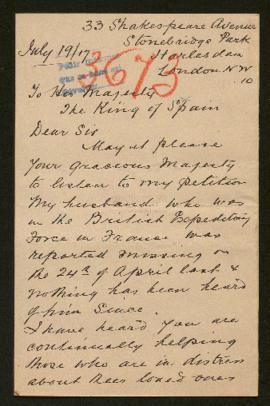 33 Shakespeare Avenue
Stonebridge Park
July 19/17 Harlesden
London N W
10
3673
To His Majesty
The King of Spain
Dear Sir
May it please
Your Gracious Magesty
to listen to my petition
My husband who was
in the British Expeditory
Force in France was
reported missing on
the 24th of April last &
nothing has been heard
of him since.
I have heard you are
continually helping
those who are in distress
about thees loved ones